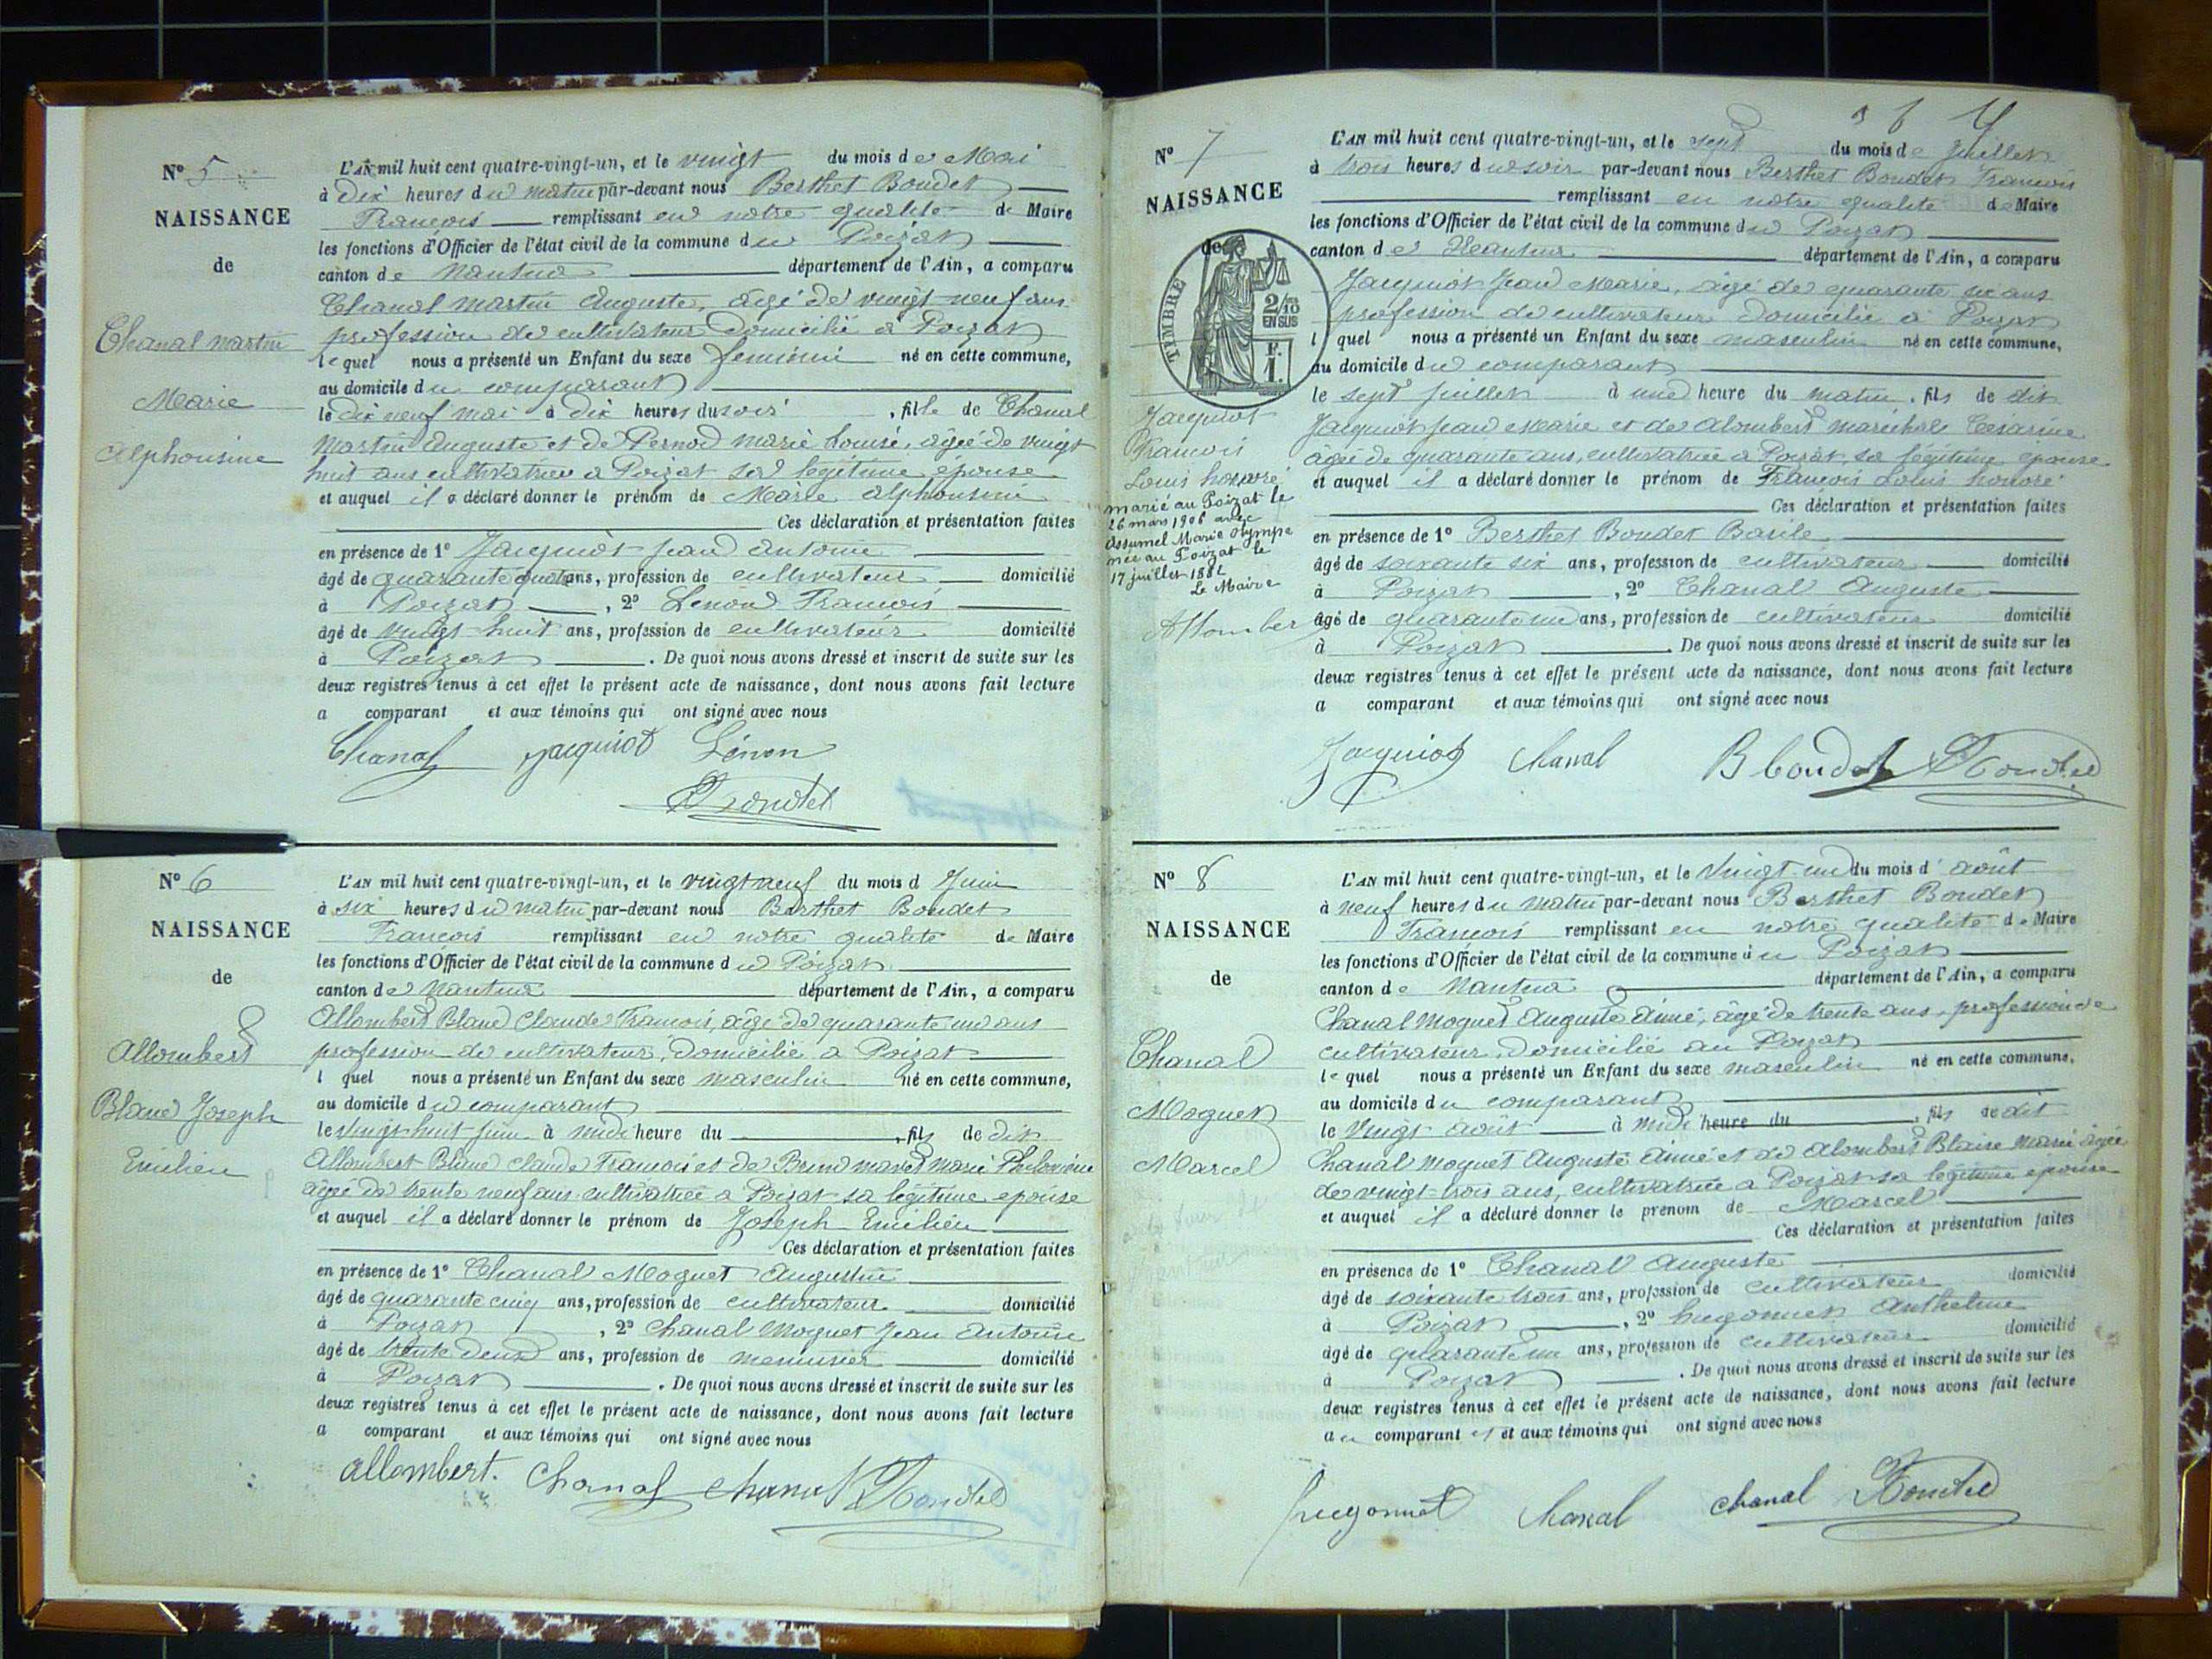 N° 5
NAISSANCE
de
Chanal Martin
Marie
Alphonsine
L'AN mil huit cent quatre-vingt-un, et le vingt du mois de Mai
à Dix heures du matin par-devant nous Berthet Boudet
François remplissant en notre qualité de Maire
les fonctions d'Officier de l'état civil de la commune du Poizat
canton de Nantua département de l'Ain, a comparu
Chanal Martin Auguste, âgé de vingt neuf ans
profession de cultivateur domicilié à Poizat
lequel nous a présenté un Enfant du sexe féminin né en cette commune,
au domicile du comparant
le dix neuf mai à dix heures du soir, fille de Chanal
Martin Auguste et de Pernod Marie Louise, âgée de vingt
huit ans cultivatrice a Poizat sa légitime épouse
et auquel il a déclaré donner le prénom de Marie Alphonsine
Ces déclaration et présentation faites
en présence de 1° Jacquiot Jean Antoine
âgé de quarante quatre ans, profession de cultivateur domicilié
à Poizat, 2° Lenon François
âgé de vingt-huit ans, profession de cultivateur domicilié
à Poizat. De quoi nous avons dressé et inscrit de suite sur les
deux registres tenus à cet effet le présent acte de naissance, dont nous avons fait lecture
a comparant et aux témoins qui ont signé avec nous
Chanal Jacquiot Lénon
Boudet
N° 6
NAISSANCE
de
Allombert
Blanc Joseph
Emilien
L'AN mil huit cent quatre-vingt-un, et le vingt neuf du mois d Juin
à six heures du matin par-devant nous Berthet Boudet
François remplissant en notre qualité de Maire
les fonctions d'Officier de l'état civil de la commune du Poizat
canton de Nantua département de l'Ain, a comparu
Allombert Blanc Claude François, âgé de quarante un ans
profession de cultivateur, domicilié a Poizat
l quel nous a présenté un Enfant du sexe masculin né en cette commune,
au domicile du comparant
le vingt huit juin à midi heure du, fils de dit
Allombert Blanc Claude François et de Marie Philomène
âgée de trente neuf ans cultivatrice a Poizat sa légitime épouse
et auquel il a déclaré donner le prénom de Joseph Emilien
Ces déclaration et présentation faites
en présence de 1° Chanal Moquet Augustin
âgé de quarante cinq ans, profession de cultivateur domicilié
à Poizat, 2° Chanal Moquet Jean Antoine
âgé de trente deux ans, profession de menuisier domicilié
à Poizat. De quoi nous avons dressé et inscrit de suite sur les
deux registres tenus à cet effet le présent acte de naissance, dont nous avons fait lecture
a comparant et aux témoins qui ont signé avec nous
allombert. Chanal chanal Boudet
N° 7
NAISSANCE
de
TIMBRE
2/10 EN SUS
Jacquiot
François
Louis honoré
marié au Poizat le
26 mars 1906 avec
Assumel Marie Olympe
née au Poizat le
17 juillet 1882
Le Maire
Allomber
L'AN mil huit cent quatre-vingt-un, et le sept du mois de juillet
à trois heures du soir par-devant nous Berthet Boudet François
remplissant en notre qualité de Maire
les fonctions d'Officier de l'état civil de la commune du Poizat
canton de Nantua département de l'Ain, a comparu
Jacquiot Jean Marie, âgé de quarante six ans
profession de cultivateur domicilié à Poizat
l quel nous a présenté un Enfant du sexe masculin né en cette commune,
au domicile du comparant
le sept juillet à une heure du matin, fils de dit
Jacquiot Jean Marie et de Alombert Maréchal Césarine
âgée de quarante ans, cultivatrice a Poizat, sa légitime épouse
et auquel il a déclaré donner le prénom de François Louis honoré
Ces déclaration et présentation faites
en présence de 1° Berthet Boudet Basile
âgé de soixante six ans, profession de cultivateur domicilié
à Poizat, 2° Chanal Auguste
âgé de quarante un ans, profession de cultivateur domicilié
à Poizat. De quoi nous avons dressé et inscrit de suite sur les
deux registres tenus à cet effet le présent acte de naissance, dont nous avons fait lecture
a comparant et aux témoins qui ont signé avec nous
Jacquiot Chanal B boudet Boudet
N° 8
NAISSANCE
de
Chanal
Moquet
Marcel
L'AN mil huit cent quatre-vingt-un, et le Vingt-un du mois d' août
à neuf heures du matin par-devant nous Berthet Boudet
François remplissant en notre qualité de Maire
les fonctions d'Officier de l'état civil de la commune du Poizat
canton de Nantua département de l'Ain, a comparu
Chanal Moquet Auguste Aimé, âgé de trente ans, profession de
cultivateur, domicilié au Poizat
lequel nous a présenté un Enfant du sexe masculin né en cette commune,
au domicile du comparant
le Vingt Août à midi heure du, fils de dit
Chanal Moquet Auguste Aimé et de Alombert Blaise Marie âgée
de vingt-trois ans, cultivatrice a Poizat sa légitime épouse
et auquel il a déclaré donner le prénom de Marcel
Ces déclaration et présentation faites
en présence de 1° Chanal Auguste
âgé de soixante trois ans, profession de cultivateur domicilié
à Poizat, 2° hugonnet Anthelme
âgé de quarante un ans, profession de cultivateur domicilié
à Poizat. De quoi nous avons dressé et inscrit de suite sur les
deux registres tenus à cet effet le présent acte de naissance, dont nous avons fait lecture
au comparant et et aux témoins qui ont signé avec nous
hugonnet Chanal chanal Boudet